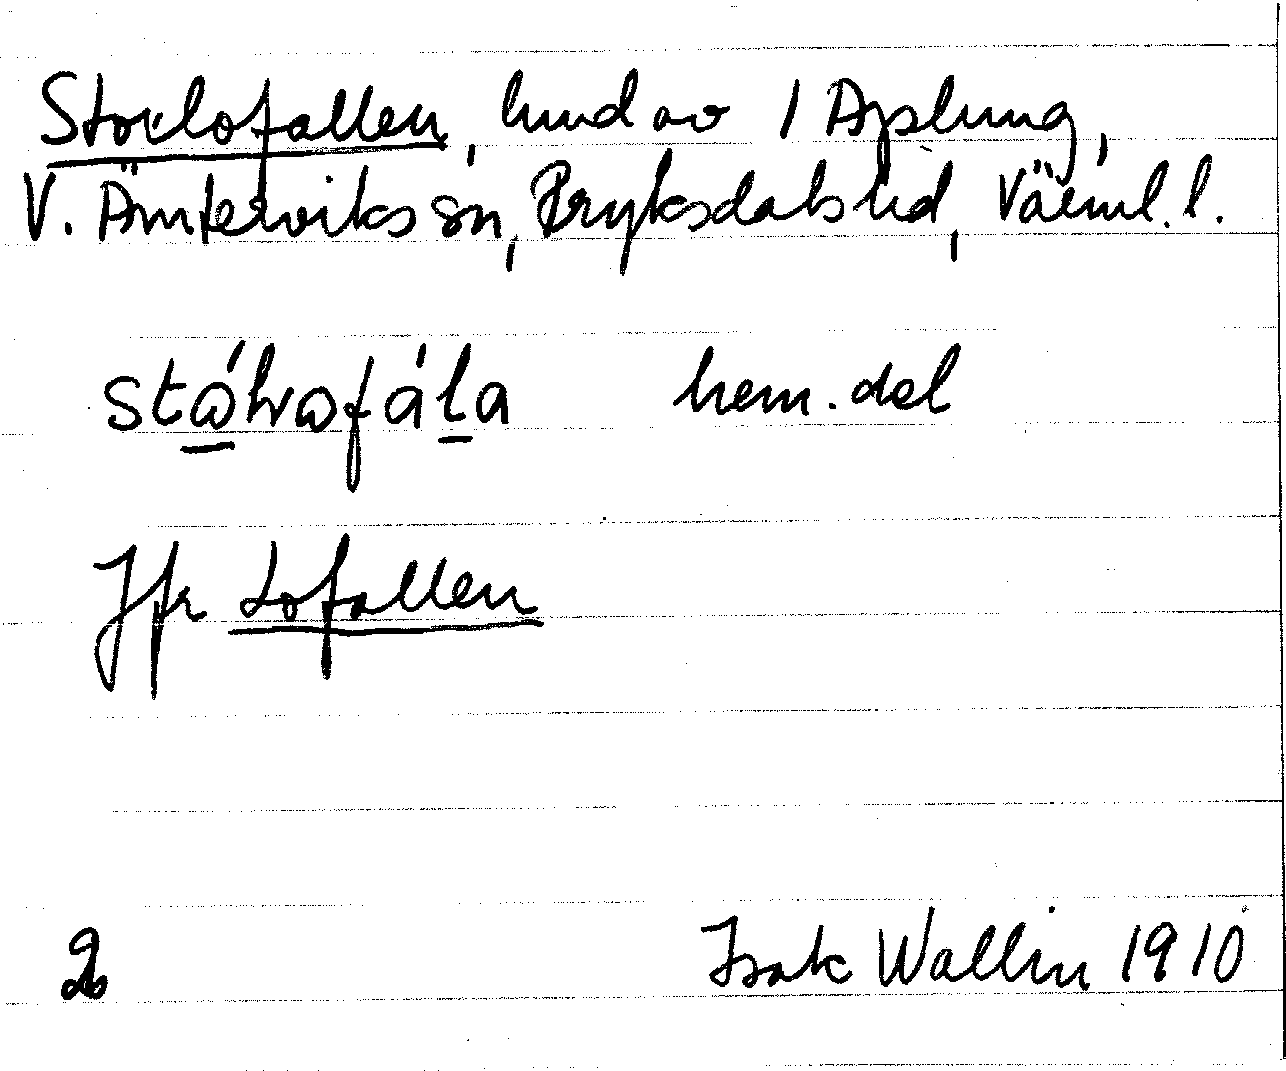 Storlofallen, hmd av 1 Aplung,
V. Ämterviks sn, Fryksdals hd, Värml. l.
stålråfála hem. del
Jfr Lofallen
2 Isak Wallin 1910